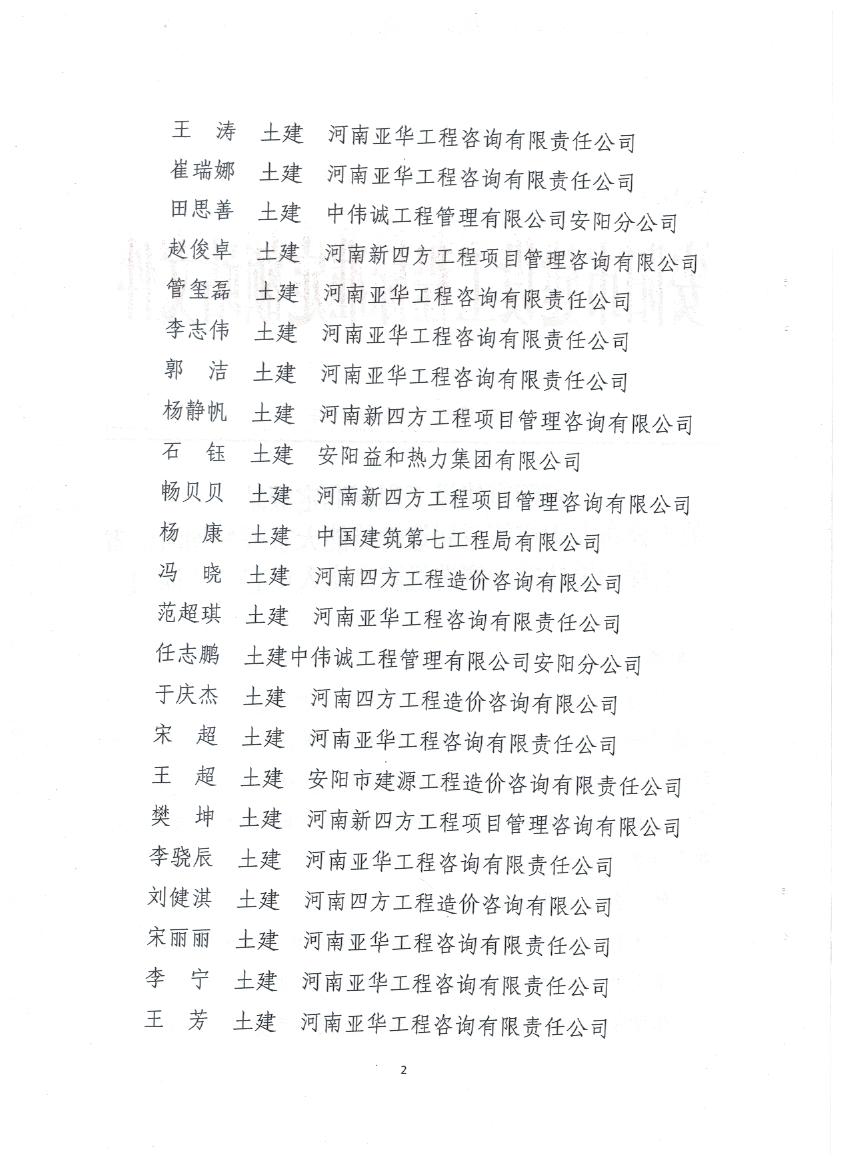 王　涛　土建　河南亚华工程咨询有限责任公司
崔瑞娜　土建　河南亚华工程咨询有限责任公司
田思善　土建　中伟诚工程管理有限公司安阳分公司
赵俊卓　土建　河南新四方工程项目管理咨询有限公司
管玺磊　土建　河南亚华工程咨询有限责任公司
李志伟　土建　河南亚华工程咨询有限责任公司
郭　洁　土建　河南亚华工程咨询有限责任公司
杨静帆　土建　河南新四方工程项目管理咨询有限公司
石　钰　土建　安阳益和热力集团有限公司
畅贝贝　土建　河南新四方工程项目管理咨询有限公司
杨　康　土建　中国建筑第七工程局有限公司
冯　晓　土建　河南四方工程造价咨询有限公司
范超琪　土建　河南亚华工程咨询有限责任公司
任志鹏　土建中伟诚工程管理有限公司安阳分公司
于庆杰　土建　河南四方工程造价咨询有限公司
宋　超　土建　河南亚华工程咨询有限责任公司
王　超　土建　安阳市建源工程造价咨询有限责任公司
樊　坤　土建　河南新四方工程项目管理咨询有限公司
李骁辰　土建　河南亚华工程咨询有限责任公司
刘健淇　土建　河南四方工程造价咨询有限公司
宋丽丽　土建　河南亚华工程咨询有限责任公司
李　宁　土建　河南亚华工程咨询有限责任公司
王　芳　土建　河南亚华工程咨询有限责任公司
2